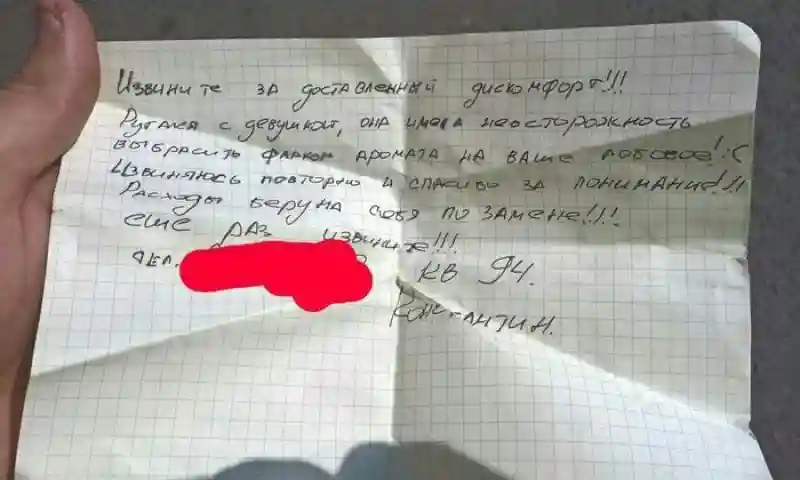 Извините за доставленный дискомфорт!!!
Ругался с девушкой, она имела неосторожность
выбрасить флакон аромата на ваше лобовое! :(
Извиняюсь повторно и спасибо за понимание!!!
Расходы беру на себя по замене!!!
еще раз извините!!!
тел. кв 94.
Константин.